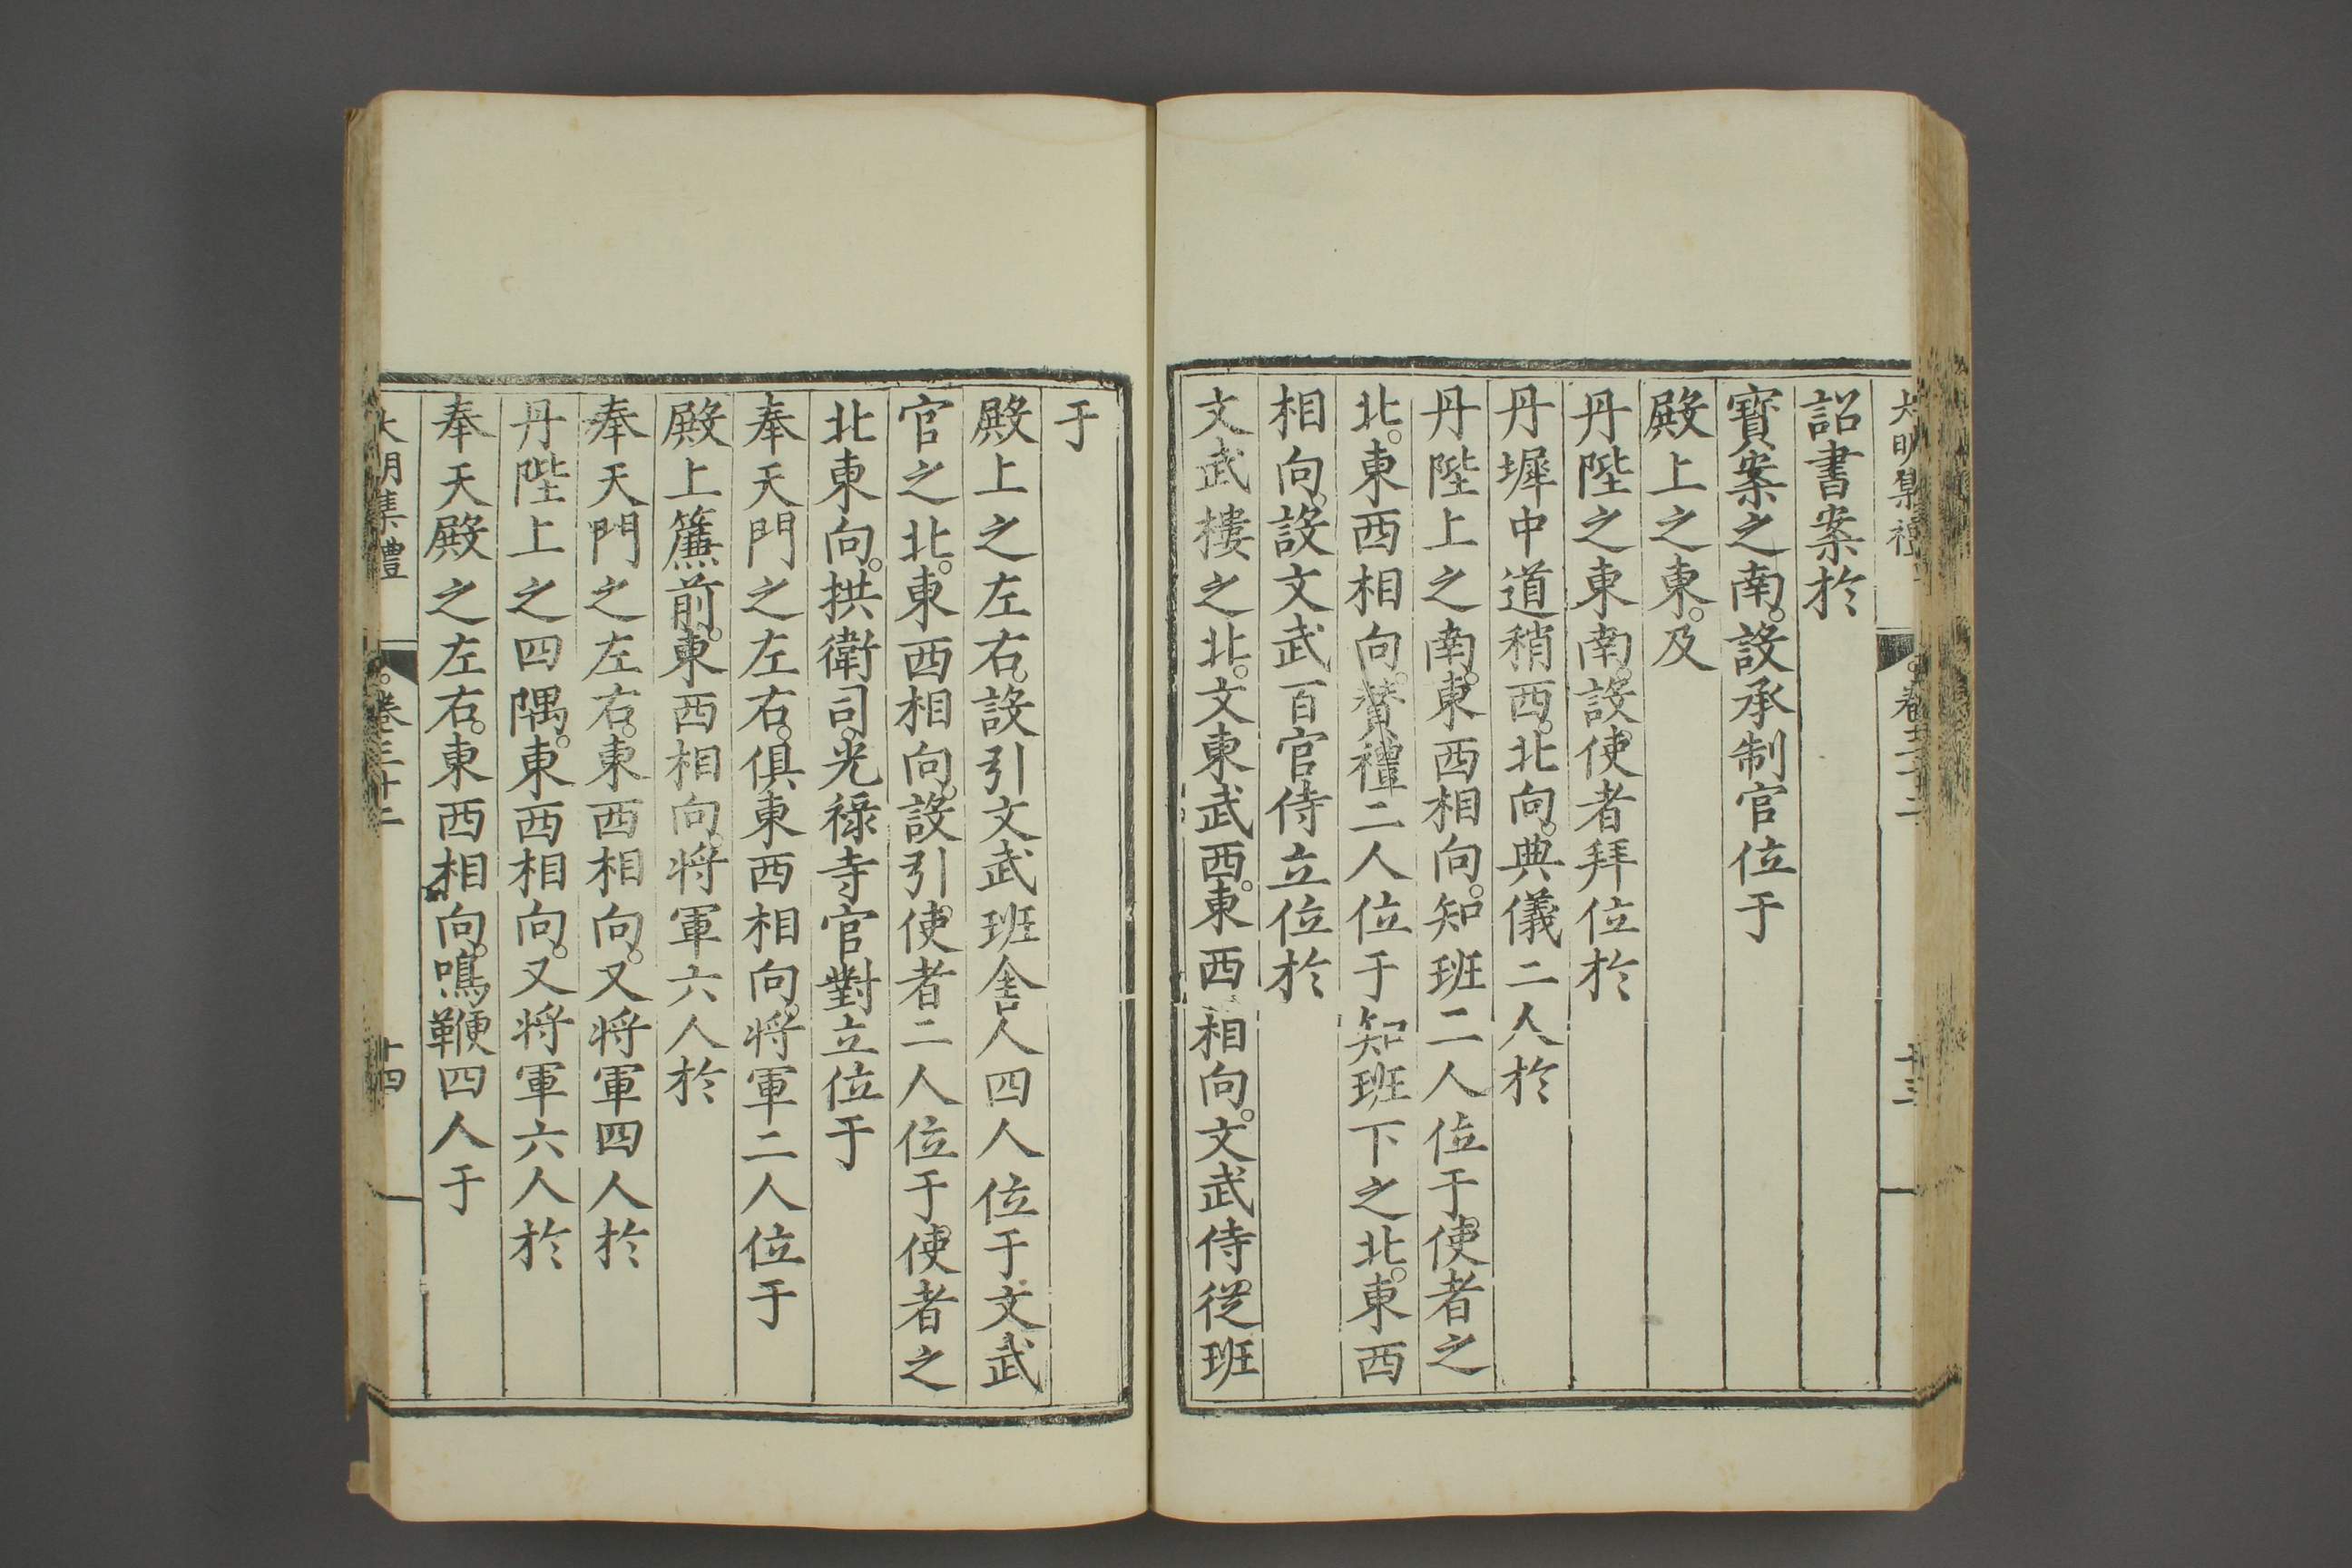 大明集禮 卷三十二 十三
詔書案於
寳案之南。設承制官位于
殿上之東。及
丹陛之東南。設使者拜位於
丹墀中道稍西。北向。典儀二人於
丹陛上之南。東西相向。知班二人位于使者之
北。東西相向。贊禮二人位于知班下之北。東西
相向。設文武百官侍立位於
文武樓之北。文東武西。東西相向。文武侍從班
于
殿上之左右。設引文武班舍人四人位于文武
官之北。東西相向。設引使者二人位于使者之
北東向。拱衛司。光祿寺官對立位于
奉天門之左右。俱東西相向。将軍二人位于
殿上簾前。東西相向。将軍六人於
奉天門之左右。東西相向。又将軍四人於
丹陛上之四隅。東西相向。又将軍六人於
奉天殿之左右。東西相向。鳴鞭四人于
大明集禮 卷三十二 十四